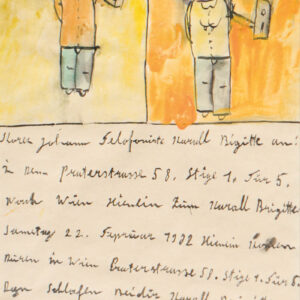 Horer Johann Telofonirte Harall Brigitte an!
in dem Praterstrasse 58. Stige 1. Tür 5.
noch Wien Hinein zum Harall Brigitte
Samstag 22. Feprüar 1972 Hinein
Büren in Wien Praterstrasse 58. Stige 1. Tür 5.
Schlafen Harall